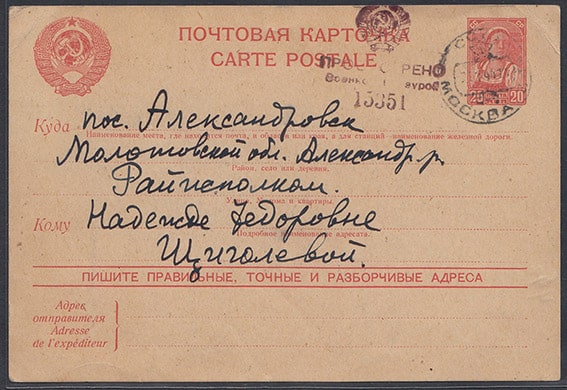 ПОЧТОВАЯ КАРТОЧКА
CARTE POSTALE
20
МОСКВА
15351
Куда
пос. Александровск
Наименование места, где находится почта, и области или края, а для станций — наименование железной дороги.
Молотовской обл. Александр. р.
Район, село или деревня.
Райисполком.
Кому
Надежде Федоровне
Подробное наименование адресата.
Щиголевой.
ПИШИТЕ ПРАВИЛЬНЫЕ, ТОЧНЫЕ И РАЗБОРЧИВЫЕ АДРЕСА
Адрес
отправителя
Adresse
de l'expéditeur